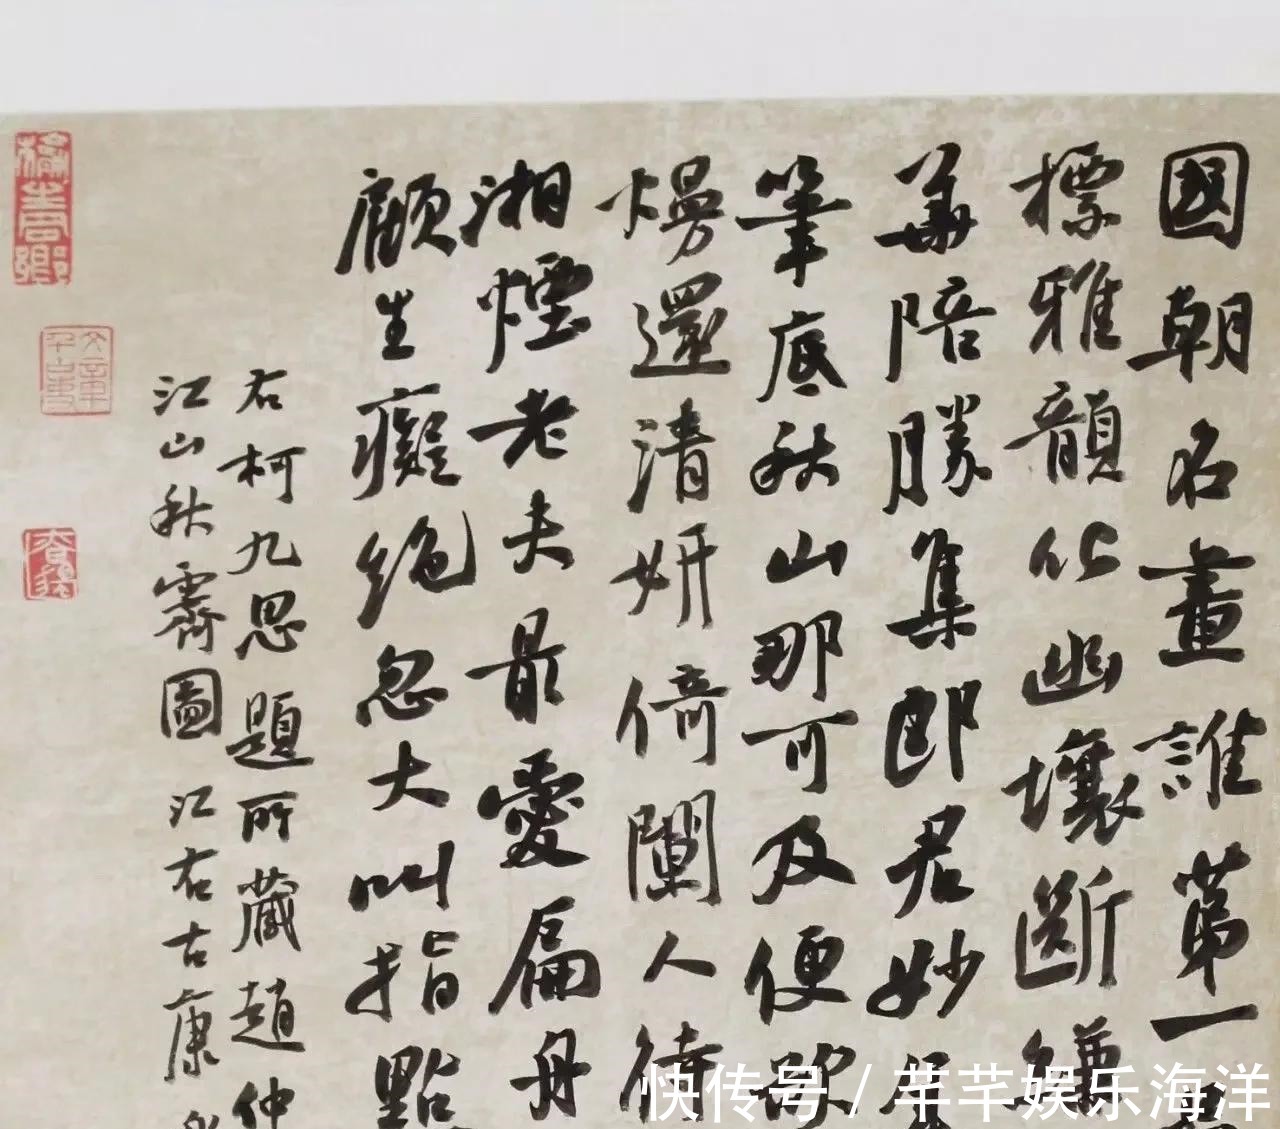 國朝名畫誰第一
標雅韻化幽壤斷縑
華陪勝集郎君妙年
筆底秋山那可及便欲
熳還清妍倚闌人待
湘煙老夫最愛扁舟
顧生癡絕忽大叫指點
右柯九思題所藏趙仲
江山秋霽圖江右古康
快传号 / 芊芊娱乐海洋